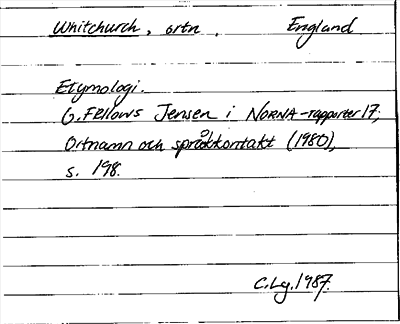 Whitchurch, ortn. England
Etymologi.
G. Fellows Jensen i NORNA-rapporter 17,
Ortnamn och språkkontakt (1980),
s. 198.
C.Lg. 1987.